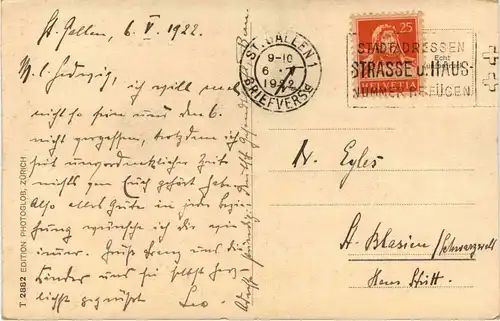 St. Gallen, 6. V. 1922.
M. l. Hedwig! ich will auch
nicht so sein und den 6.
nicht vergessen, trotzdem ich
seit unvordenklicher Zeit
nichts von Euch gehört habe.
Also alles Gute in jeder Bezie-
hung wünsche ich dir wie
immer. Grüße Franz und die
Kinder und sei selbst herz-
lichst gegrüßt Leo.
T 2882 EDITION PHOTOGLOB, ZÜRICH
ST. GALLEN 1
9-10
1922
BRIEFVERSD
25
HELVETIA
STADTADRESSEN
STRASSE U. HAUS-
NUMMER BEIFÜGEN
Echt
Eyles
St. Blasien (Schwarzwald
Haus